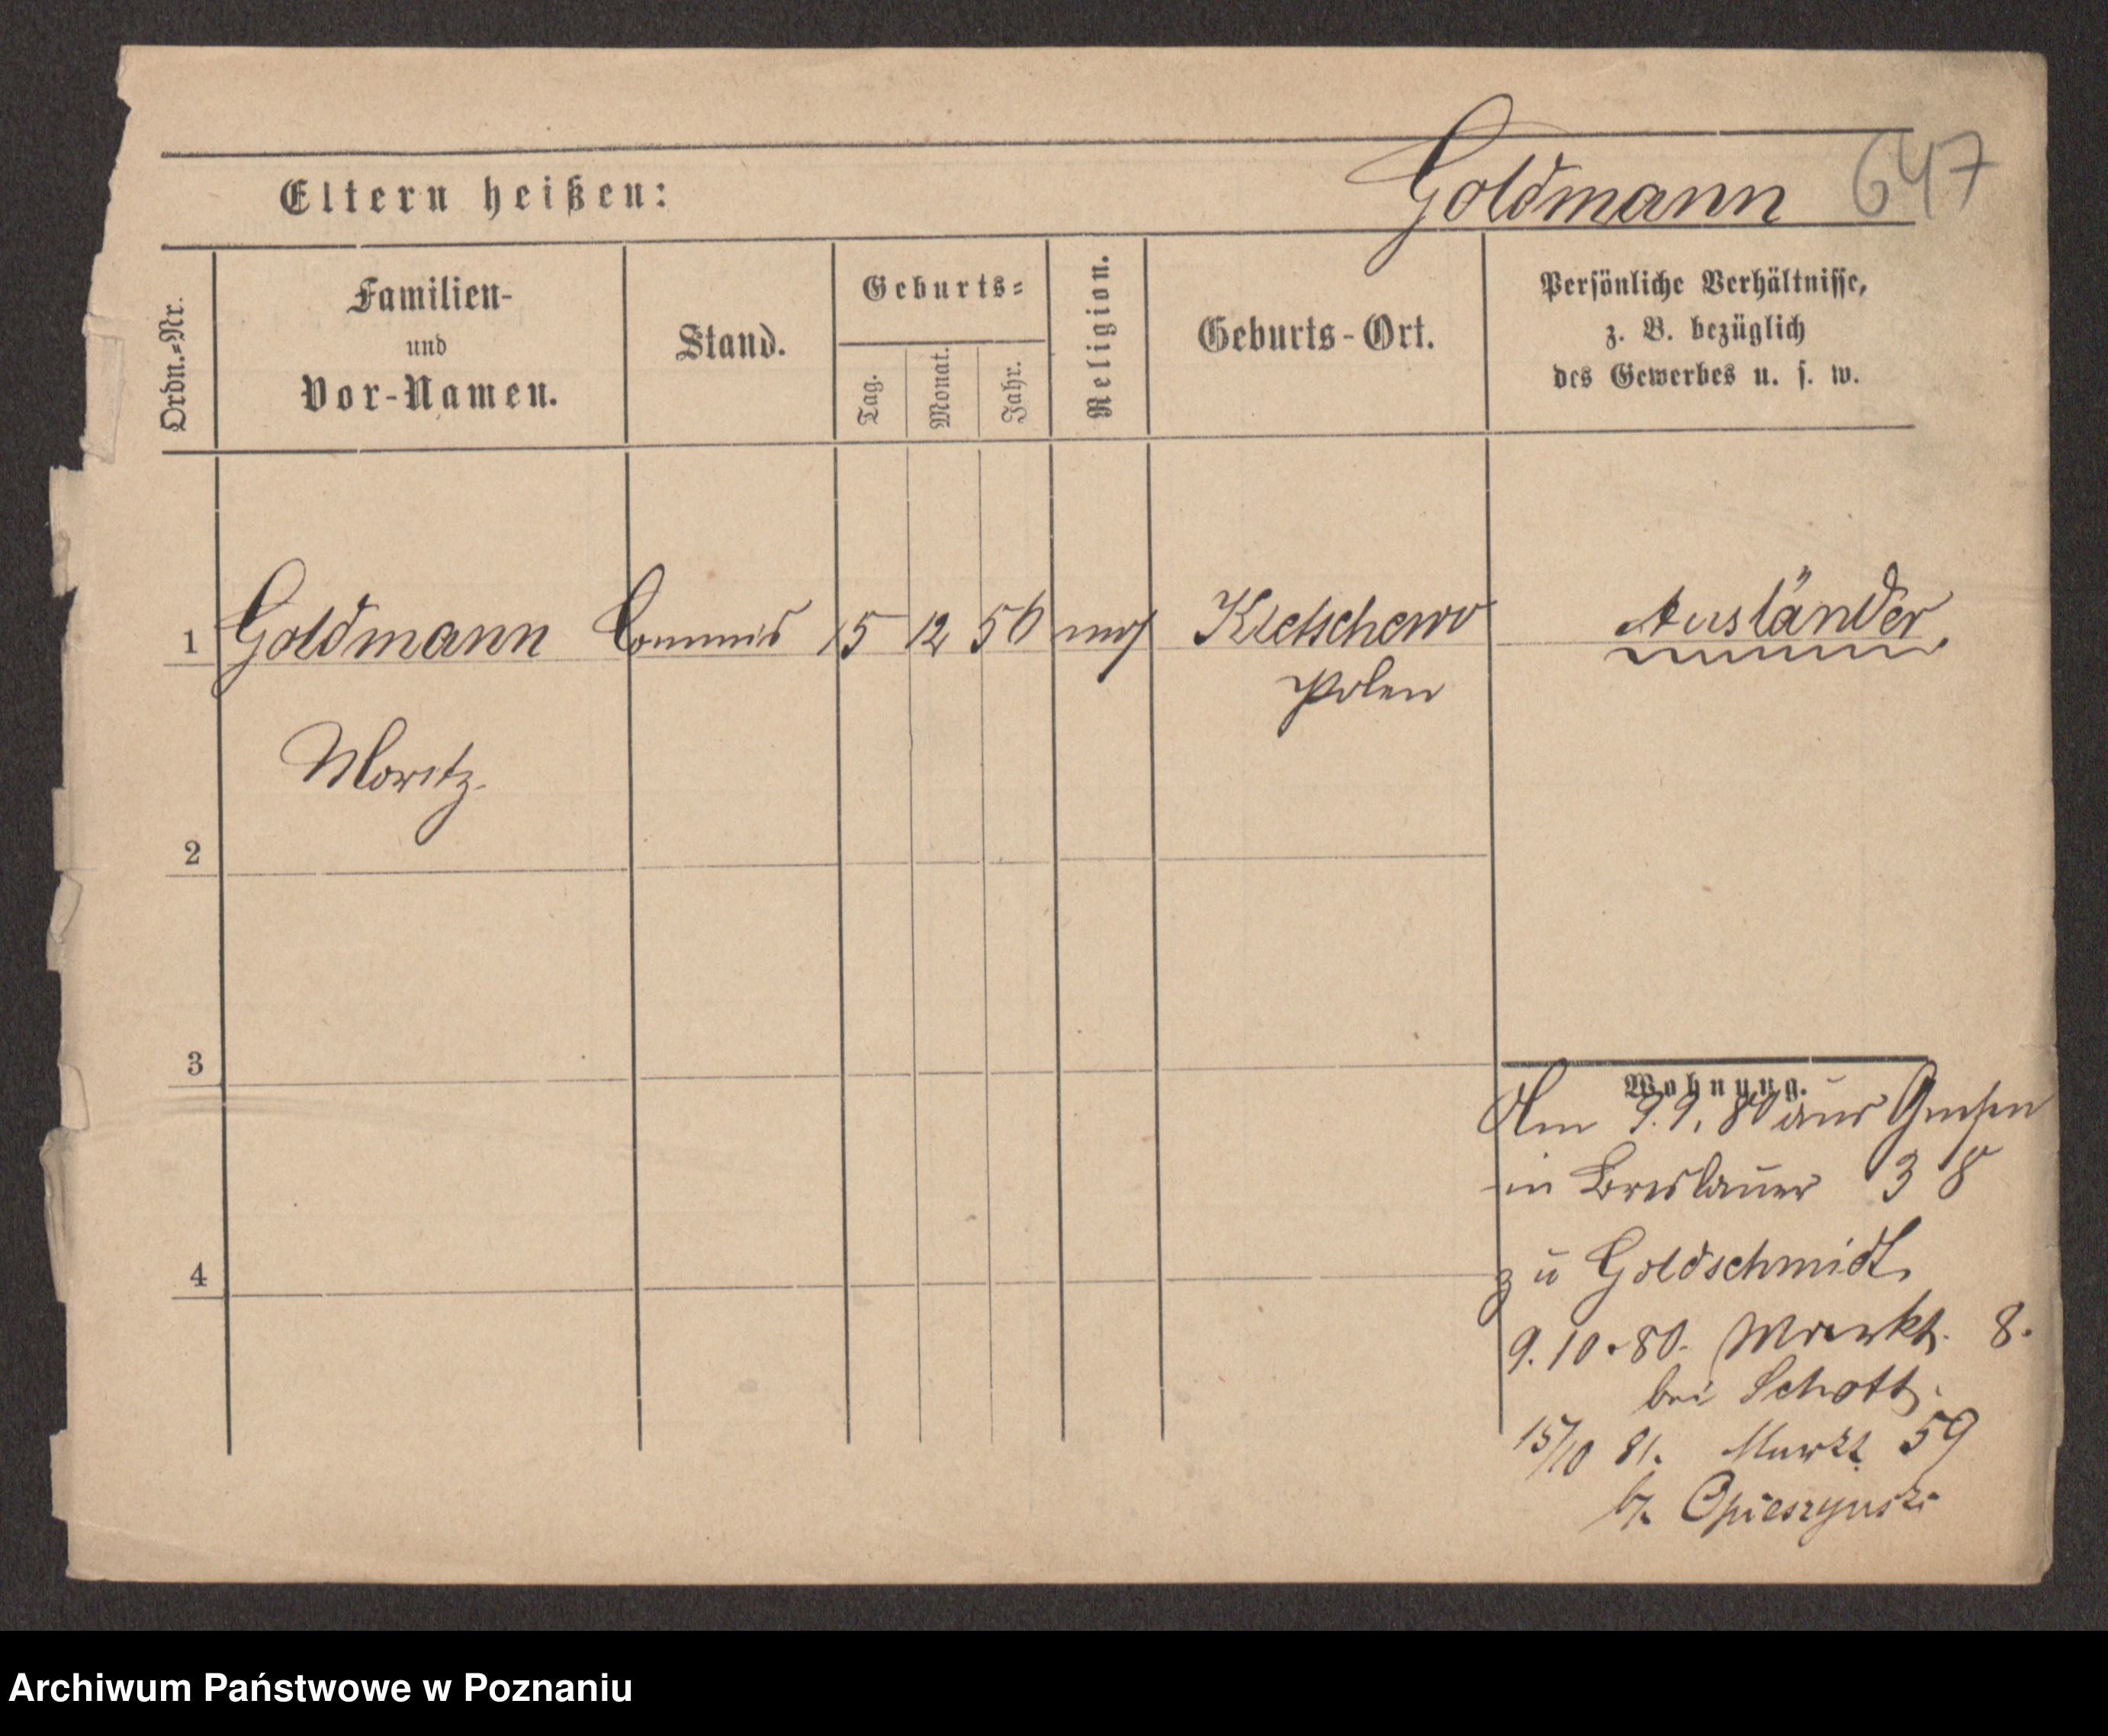 Goldmann 647
Eltern heißen:
Ordn.=Nr.
Familien-
und
Vor-Namen.
Stand.
Geburts=
Tag.
Monat.
Jahr.
Religion.
Geburts-Ort.
Persönliche Verhältnisse,
z. B. bezüglich
des Gewerbes u. s. w.
1 Goldmann Commis 15 12 56 mos Kletschewo Ausländer,
Polen
Moritz.
2
3
Wohnung.
Am 9.9.80 aus Gnesen
in Breslauer 38
4
zu Goldschmidt,
9.10.80. Markt. 8.
bei Schott,
15/10 81. Markt 59
b/